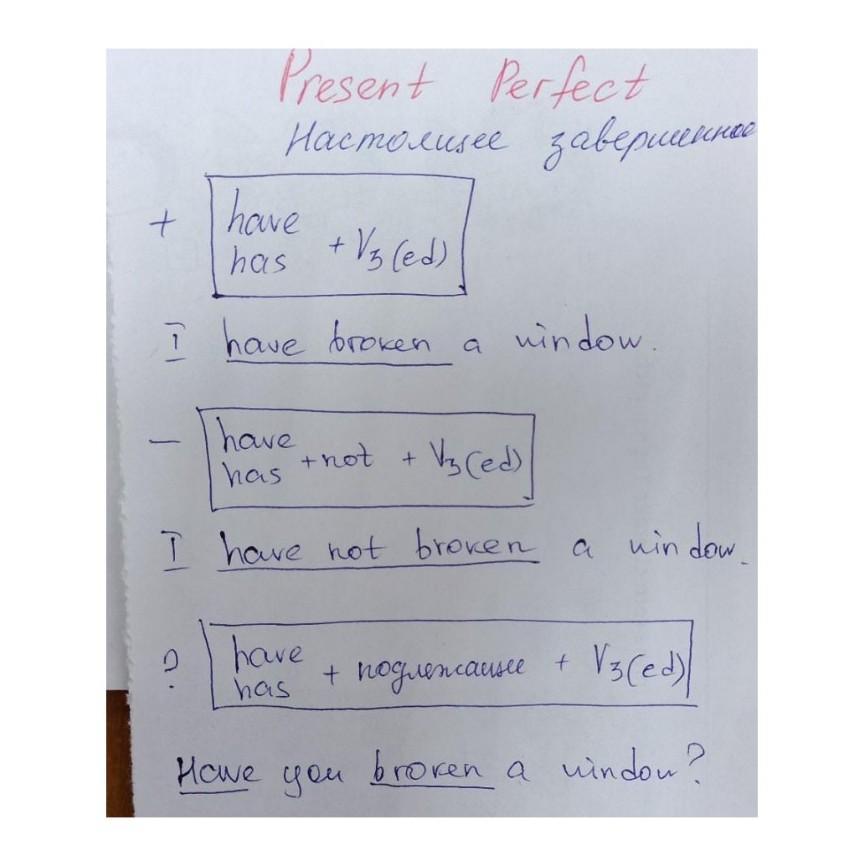 Present Perfect
Настоящее завершенное
+ have has + V3(ed)
I have broken a window.
– have has + not + V3(ed)
I have not broken a window.
? have has + подлежащее + V3(ed)
Have you broken a window?